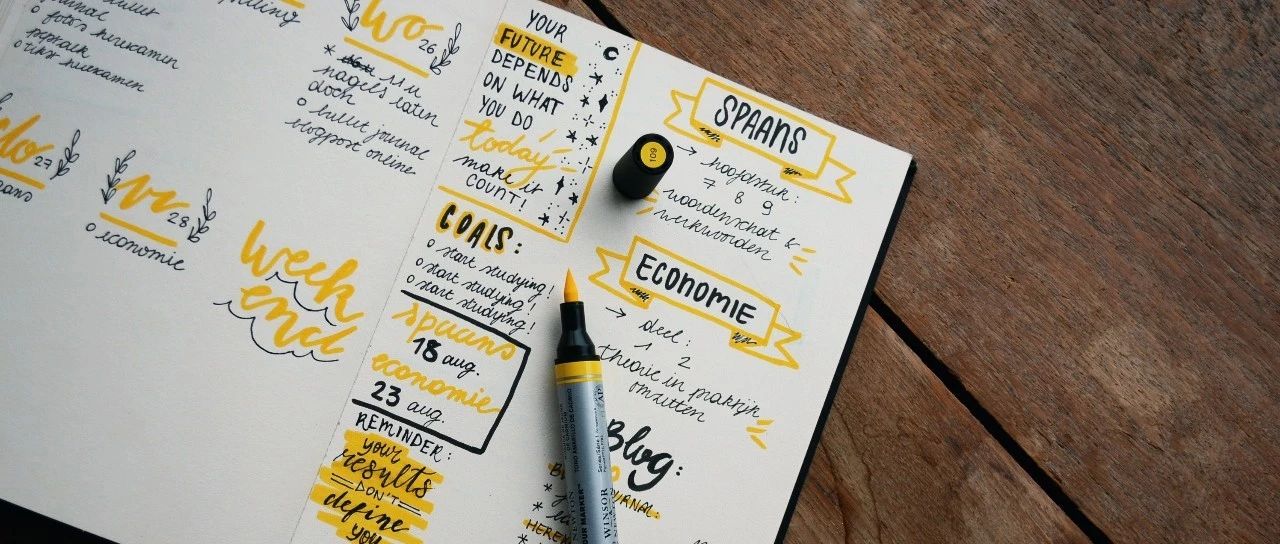 o foto's herexamen
o tekst herexamen
wo 26
* 11u
nagels laten
doen
o bullet journal
blogpost online
do 27
vr 28
o economie
week
end
YOUR
FUTURE
DEPENDS
ON WHAT
YOU DO
today
make it
COUNT!
GOALS:
o start studying!
o start studying!
o start studying!
spaans
18 aug.
economie
23 aug.
REMINDER:
your
results
DON'T
define
you
SPAANS
→ hoofdstuk:
7 8 9
woordenschat &
werkwoorden
ECONOMIE
→ deel:
1 2
theorie in praktijk
omzetten
Blog:
109
WINSOR